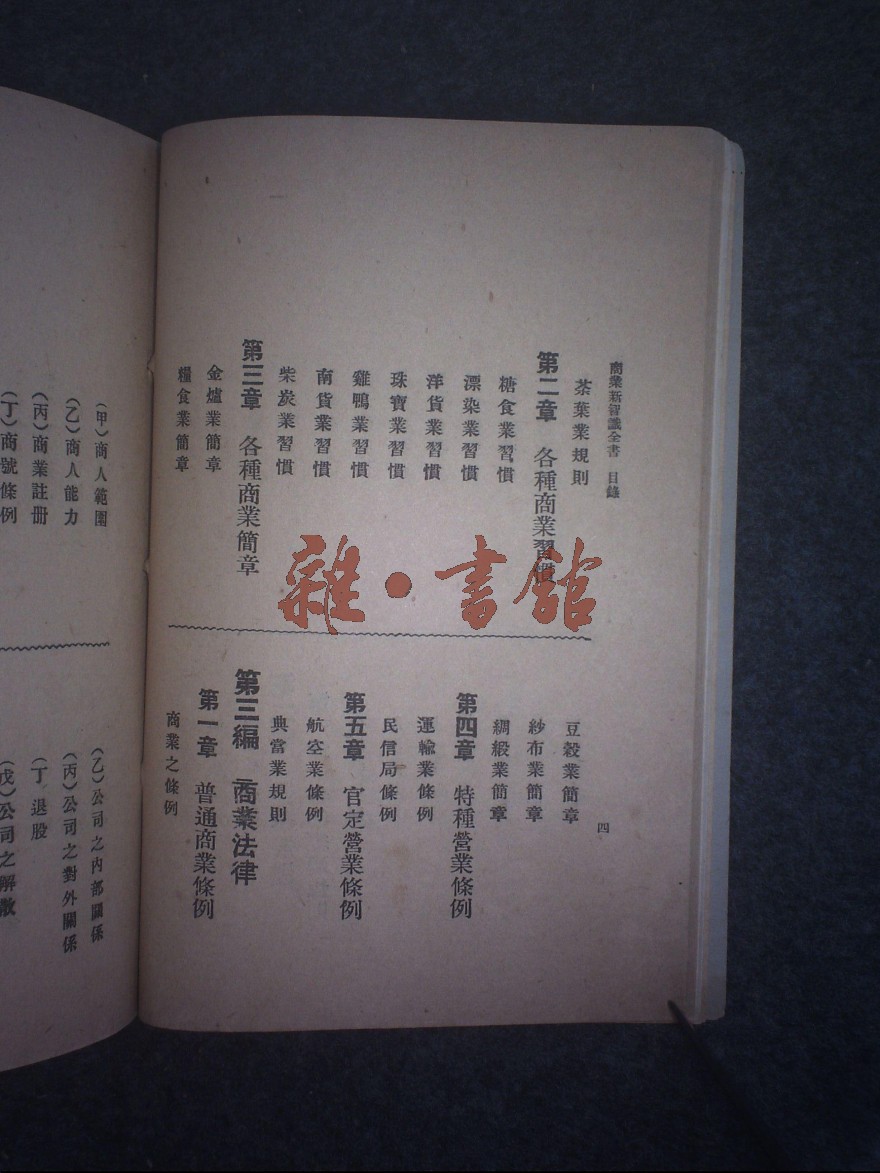 商業新智識全書　目錄
茶葉業規則
第二章　各種商業習慣
糖食業習慣
漂染業習慣
洋貨業習慣
珠寶業習慣
雞鴨業習慣
南貨業習慣
柴炭業習慣
第三章　各種商業簡章
金爐業簡章
糧食業簡章
四
豆穀業簡章
紗布業簡章
綢緞業簡章
第四章　特種營業條例
運輸業條例
民信局條例
第五章　官定營業條例
航空業條例
典當業規則
第三編　商業法律
第一章　普通商業條例
商業之條例
(甲)商人範圍
(乙)商人能力
(丙)商業註册
(丁)商號條例
(乙)公司之內部關係
(丙)公司之對外關係
(丁)退股
(戊)公司之解散
雜·書館